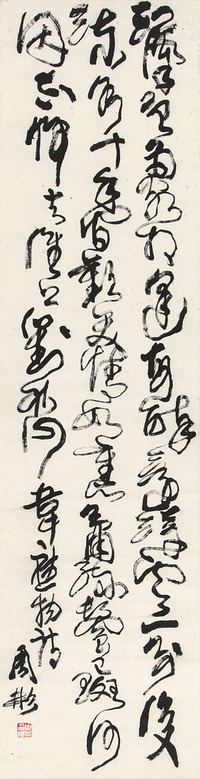 江漢曾為客相逢每醉還浮雲一別後
流水十年間歡笑情如舊蕭疏鬢已斑何
因不歸去淮上對秋山 韋應物詩 周